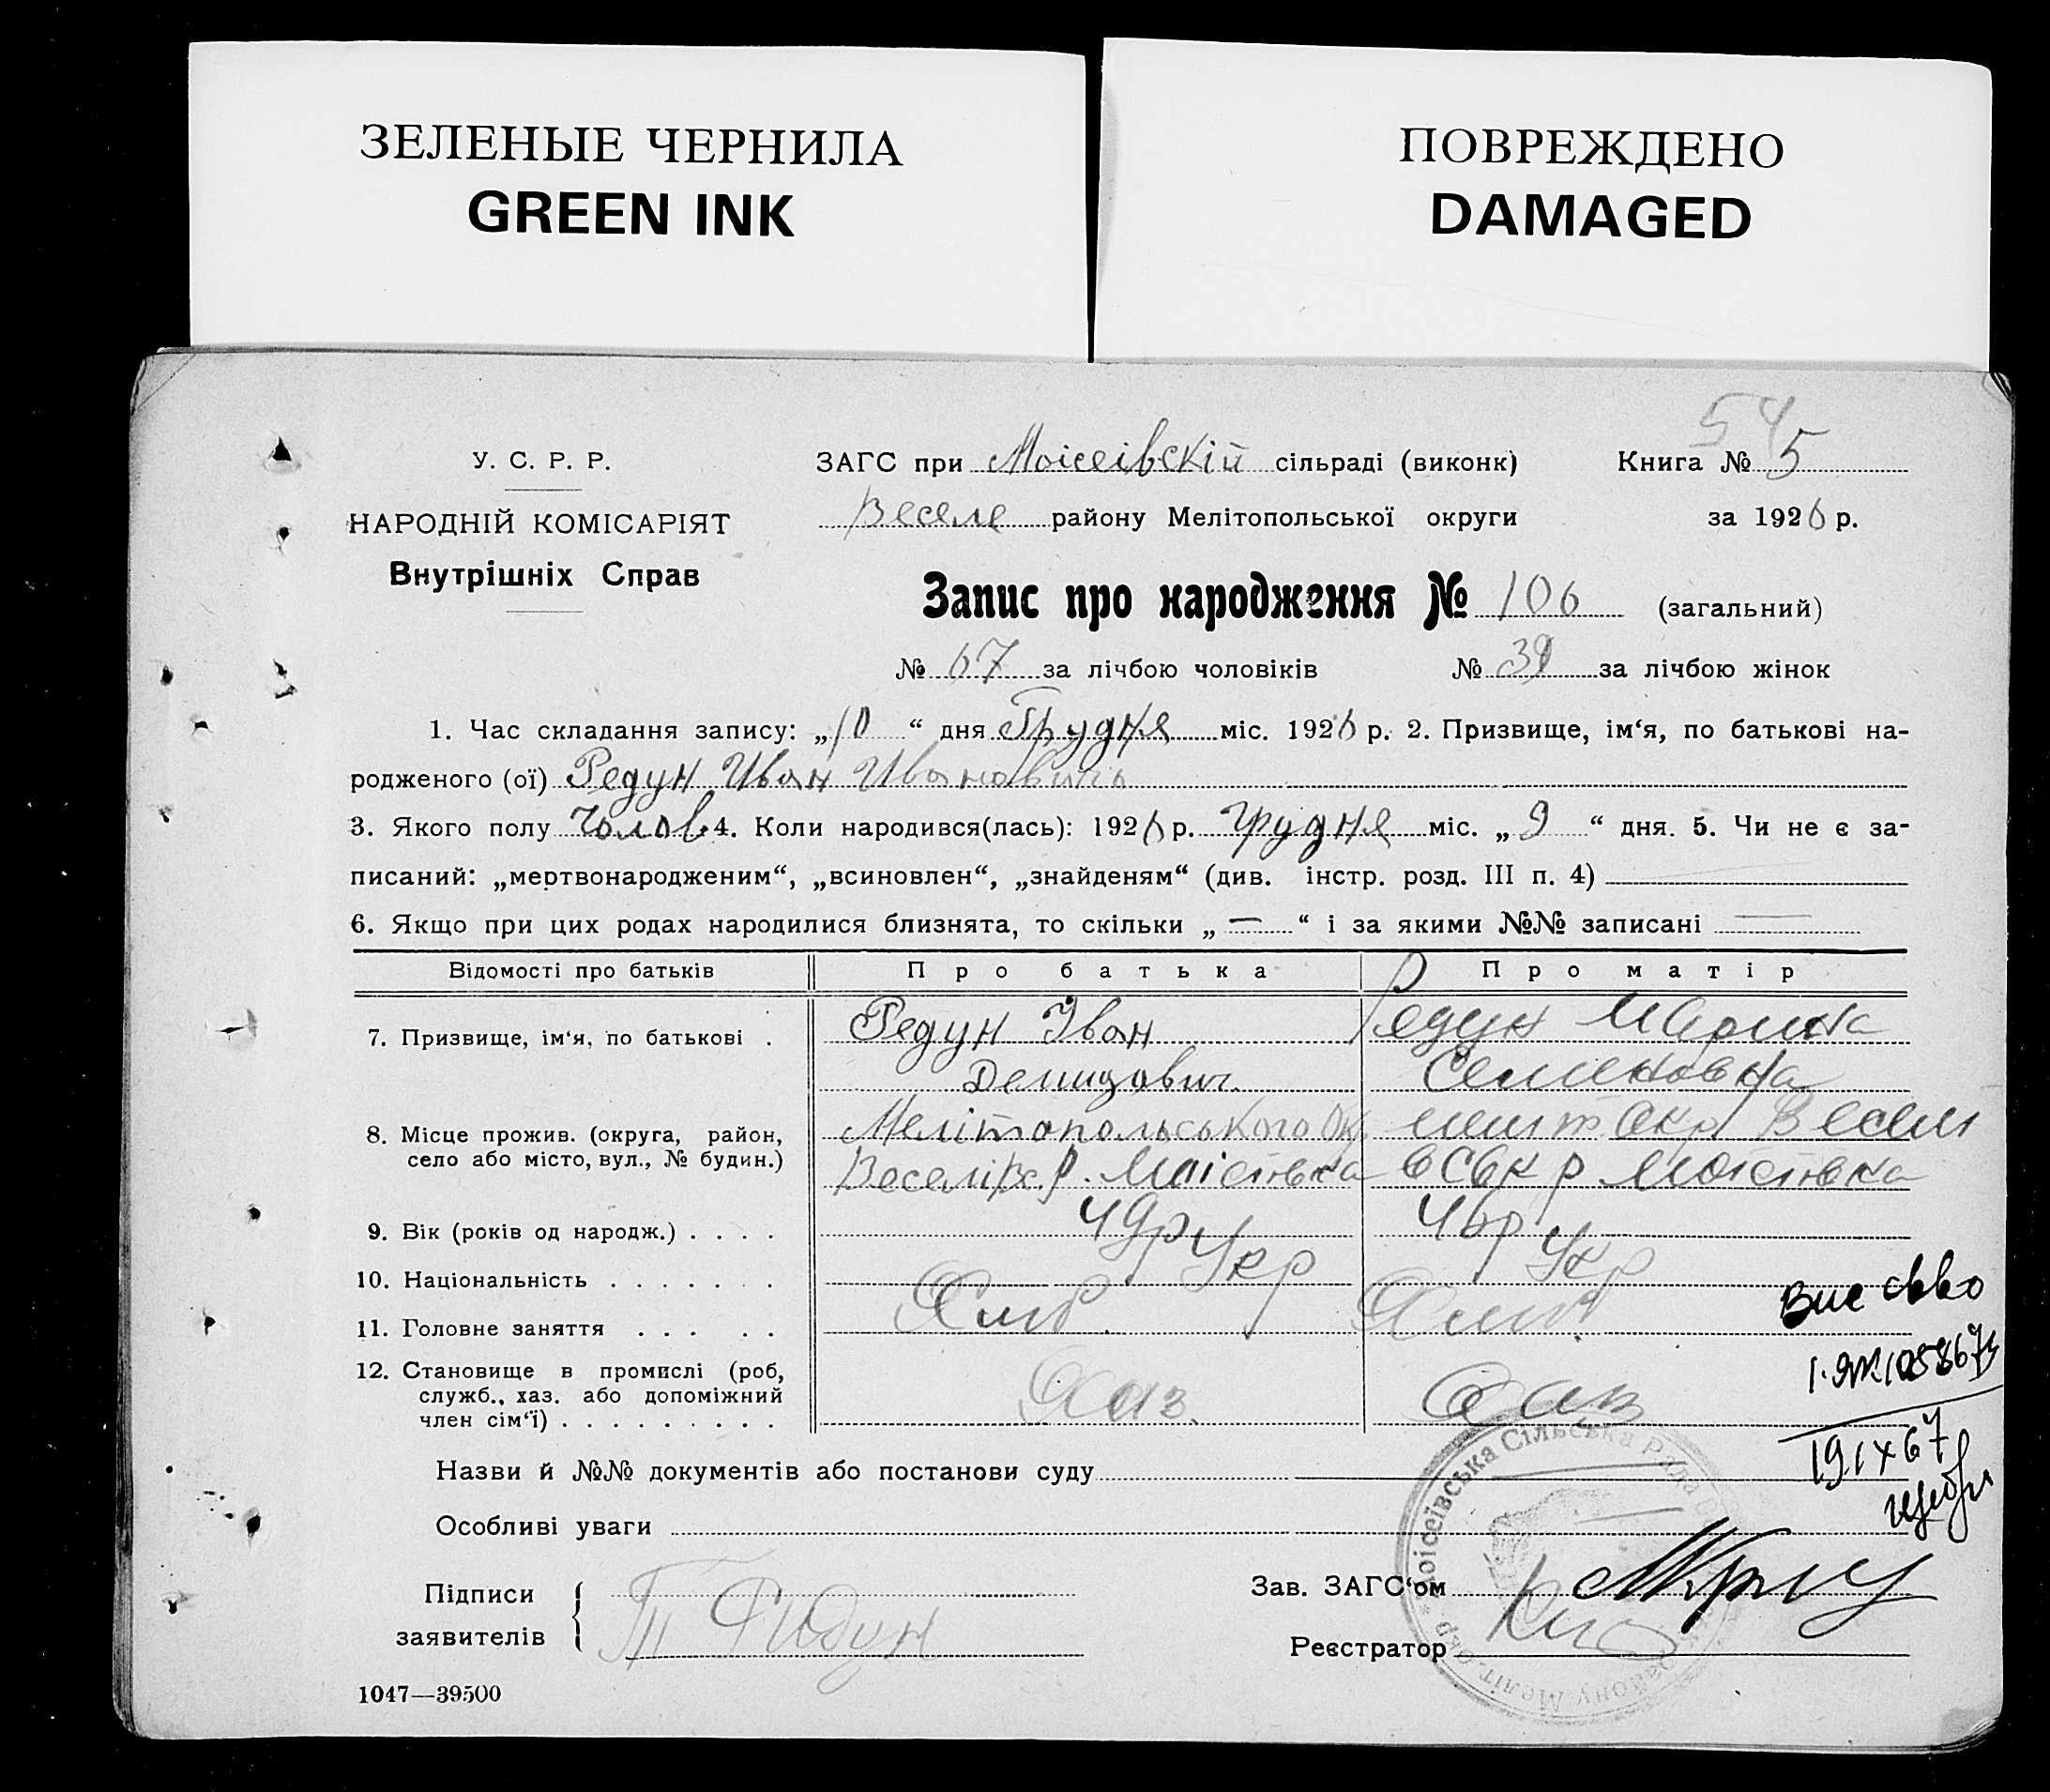 ЗЕЛЕНЫЕ ЧЕРНИЛА
GREEN INK
ПОВРЕЖДЕНО
DAMAGED
54
У. С. Р. Р.
НАРОДНІЙ КОМІСАРІЯТ
Внутрішніх Справ
ЗАГС при Моісеівскій сільраді (виконк) Книга № 5
Веселе району Мелітопольської округи за 1926 р.
Запис про народження № 106 (загальний)
№ 67 за лічбою чоловіків № 39 за лічбою жінок
1. Час складання запису: „10“ дня Грудня міс. 1926 р. 2. Призвище, ім‘я, по батькові на-
родженого (ої) Редун Иван Ивановичь
3. Якого полу Чолов 4. Коли народився(лась): 1926 р. Грудня міс. „9“ дня. 5. Чи не є за-
писаний: „мертвонародженим“, „всиновлен“, „знайденям“ (див. інстр. розд. III п. 4)
6. Якщо при цих родах народилися близнята, то скільки „—“ і за якими №№ записані —
Відомості про батьків Про батька Про матір
7. Призвище, ім‘я, по батькові . Редун Іван Редун Марина
Демидович Семеновна
8. Місце прожив. (округа, район, Мелітопольського Ок. окр Весели
село або місто, вул., № будин.) Веселівс. р. Моісівка вськ р Моісівка
9. Вік (років од народж.) . . . . 49р 46р
10. Національність . . . . . . . Укр Укр
11. Головне заняття . . . . .
12. Становище в промислі (роб,
служб., хаз. або допоміжний Хаз. Хаз
член сім‘ї) . . . . . . . . .
Вис свво
Назви й №№ документів або постанови суду
Особливі уваги
Підписи
заявителів Редун
Зав. ЗАГС‘ом
Реєстратор
Моісеївська Сільська Рада
району Меліт. окр.
1047—39500